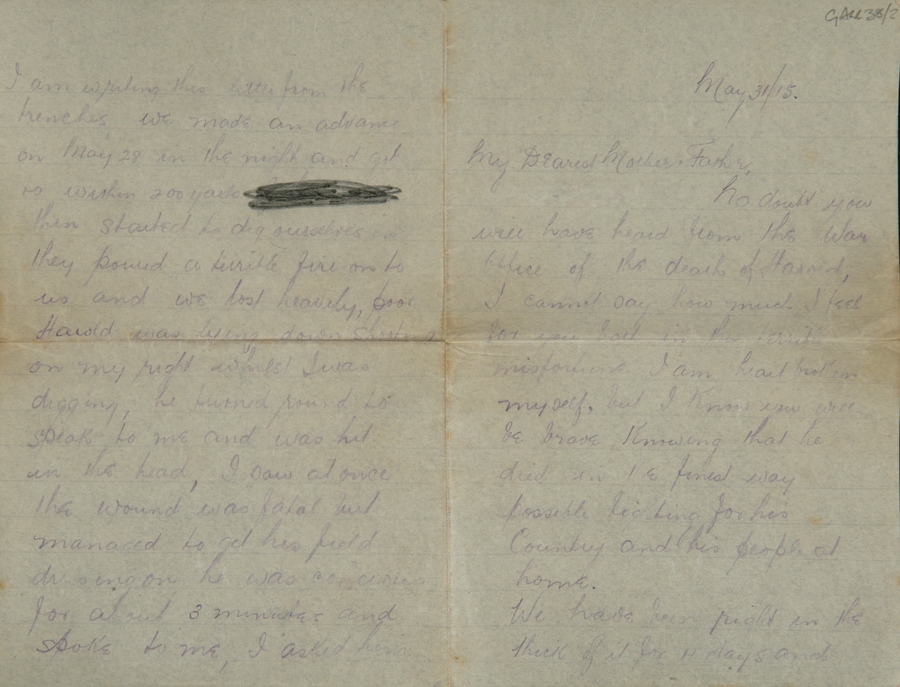 GALL 38/2
May 31/15.
My Dearest Mother & Father,
No doubt you
will have heard from the War
Office of the death of Harold,
I cannot say how much I feel
for you both in this terrible
misfortune I am heart broken
myself, but I know you will
be brave knowing that he
died in the finest way
possible fighting for his
Country and his people at
home.
We have been right in the
thick of it for days and
I am writing this letter from the
trenches we made an advance
on May 28 in the night and got
to within 200 yards
then started to dig ourselves in
they poured a terrible fire on to
us and we lost heavily, poor
Harold was lying down
on my right whilst I was
digging, he turned round to
speak to me and was hit
in the head, I saw at once
the wound was fatal but
managed to get his field
dressing on he was conscious
for about 3 minutes and
spoke to me, I asked him